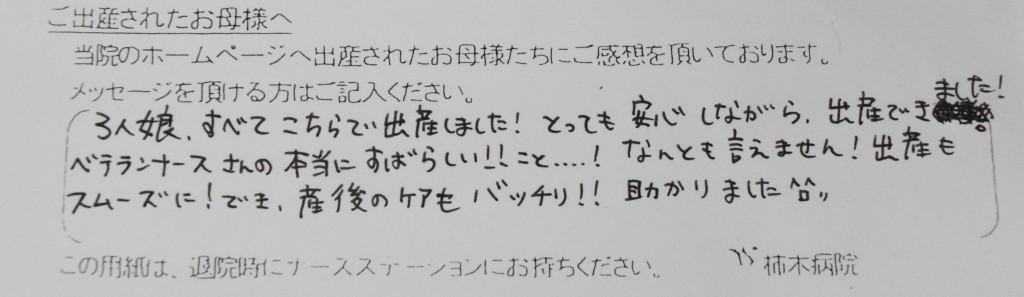 ご出産されたお母様へ
当院のホームページへ出産されたお母様たちにご感想を頂いております。
メッセージを頂ける方はご記入ください。
3人娘、すべてこちらで出産しました！とっても安心しながら、出産できました！
ベテランナースさんの本当にすばらしい!!こと.....！なんとも言えません！出産も
スムーズに！でき、産後のケアもバッチリ!!助かりました^o^〃
この用紙は、退院時にナースステーションにお持ちください。 柿木病院